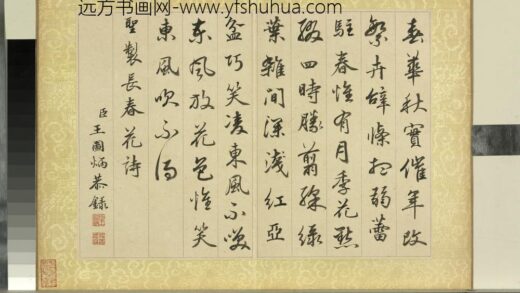 远方书画网-www.yfshuhua.com
春華秋實催年改
繁卉辭條弱蕾
駐春惟有月季花點
綴四時勝翦綵綠
葉雜間深淺紅亞
盆巧笑凌東風不
東風放花色惟笑
東風吹不得
聖製長春花詩
臣王圖炳恭錄